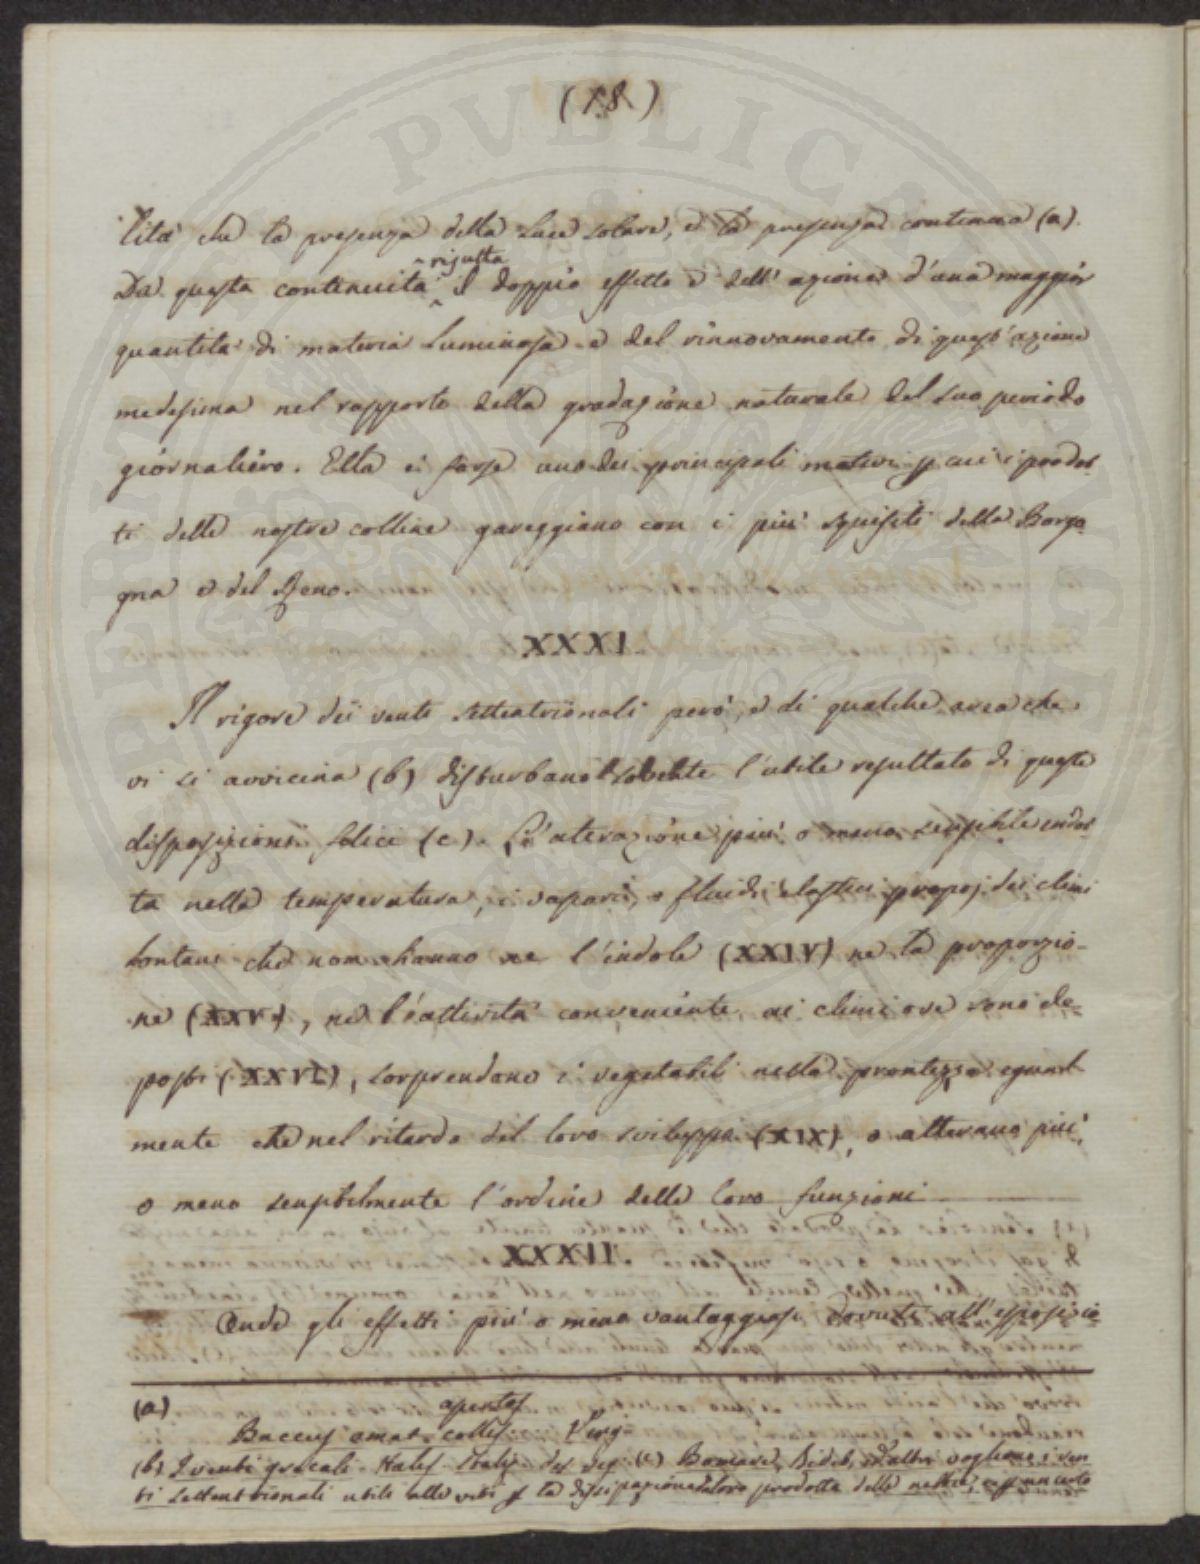 (18)
lità che la presenza della luce solare, e la presenza continua (a).
Da questa continuità risulta il doppio effetto e dell' azione d'una maggior
quantità di materia luminosa e del rinnovamento di quest' azione
medesima nel rapporto della gradazione naturale del suo periodo
giornaliero. Ella è forse uno dei principali motivi p cui i prodot
ti delle nostre colline gareggiano con i più squisiti della Borgo
gna e del Reno.
XXXI.
Il rigore dei venti settentrionali però, e di qualche area che
vi si avvicina (b) disturbano sovente l'utile resultato di queste
disposizioni felici (c). L'alterazione più o meno sensibile indot
ta nella temperatura, i vapori, e fluidi elastici proprj dei climi
lontani che non hanno ne l'indole (XXIV) ne la proporzio-
ne (XXV), ne l'attività conveniente ai climi ove sono de-
posti (XXVI), sorprendono i vegetabili nella prontezza egual
mente che nel ritardo del loro sviluppo (XIX), o alterano più
o meno sensibilmente l'ordine delle loro funzioni
XXXII.
Onde gli effetti più o meno vantaggiosi dovuti all' esposizio
(a)
apertos
Baccus amat colles Virg
(b) I venti grecali - Hales Stat. des Veg. (c) Bomare, Bidet, ed altri vogliono i ven
ti settentrionali utili alle viti p la dissipazione loro prodotta delle nebbie, e p un certo